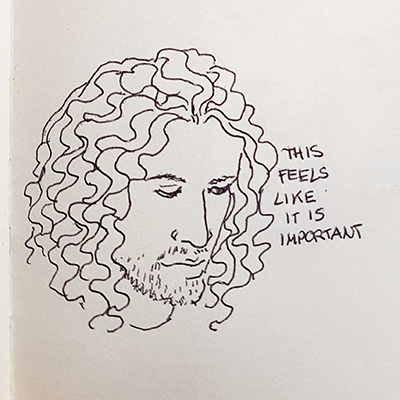 THIS
FEELS
LIKE
IT IS
IMPORTANT